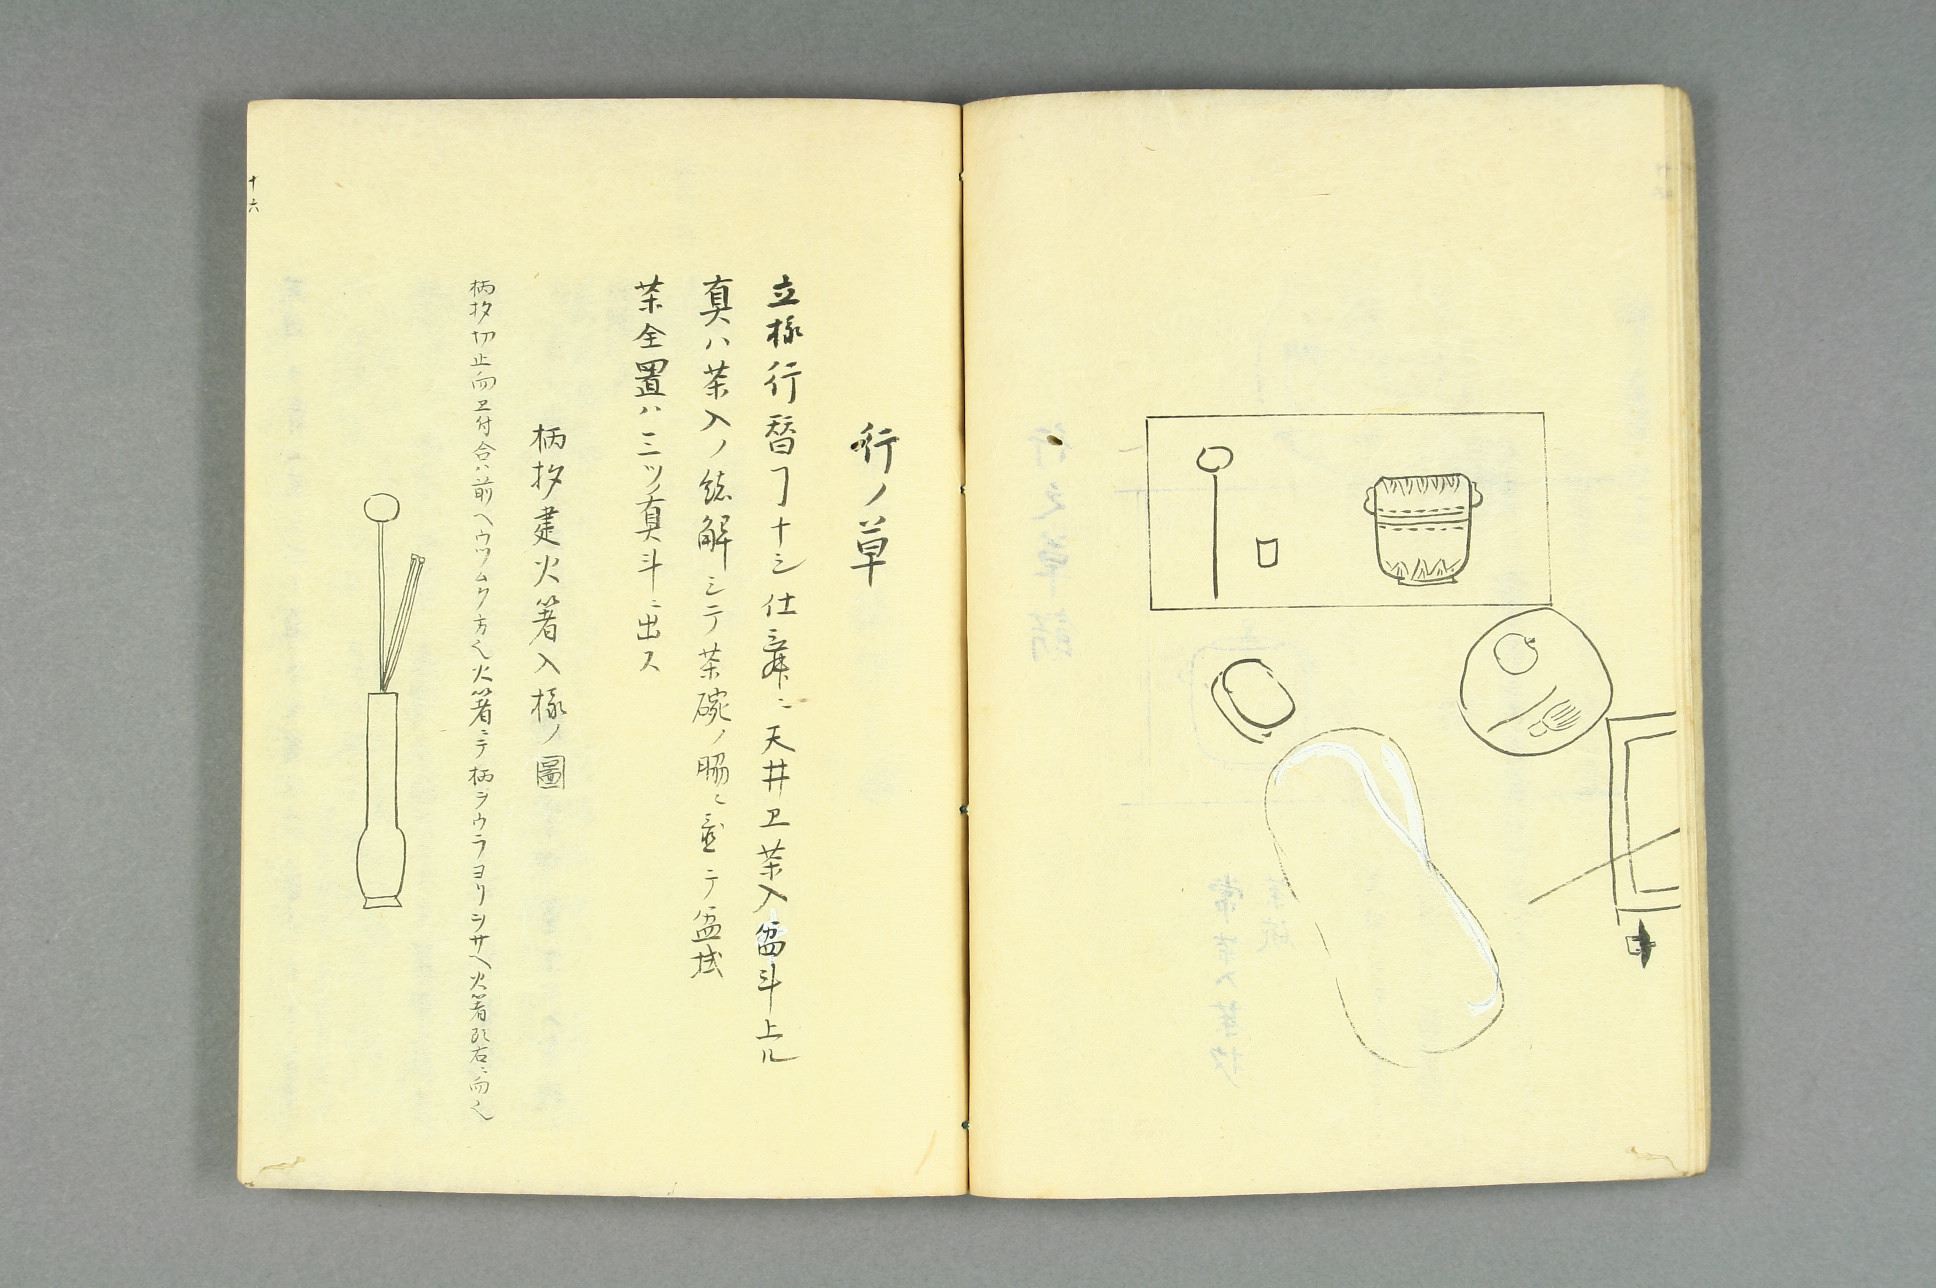 行ノ草
立様行替ヿナシ仕舞ニ天井卫茶入盆斗上ル
真ハ茶入ノ緒解シテ茶碗ノ脇ニ置テ盆拭
茶全置ハ三ツ真斗ニ出ス
柄杓建火箸入様ノ圖
柄杓切止向卫付合ハ前ヘウツムク方也火箸ニテ柄ヲウラヨリヲサヘ火箸頭右ニ向也
十六